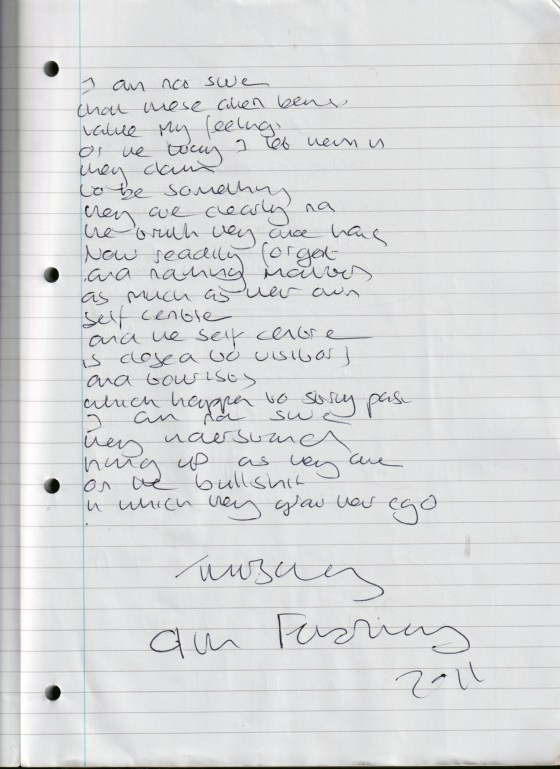 I am not sure
that these alien beings
value my feelings
or the way I let them in
they claim
to be something
they are clearly not
the truth they are
Now readily forgot
and nothing matters
as much as their own
self centre
and the self centre
is closed to visitors
and tourists
which happen to stray past
I am not sure
they understand
hung up as they are
on the bullshit
in which they grow their ego
2011